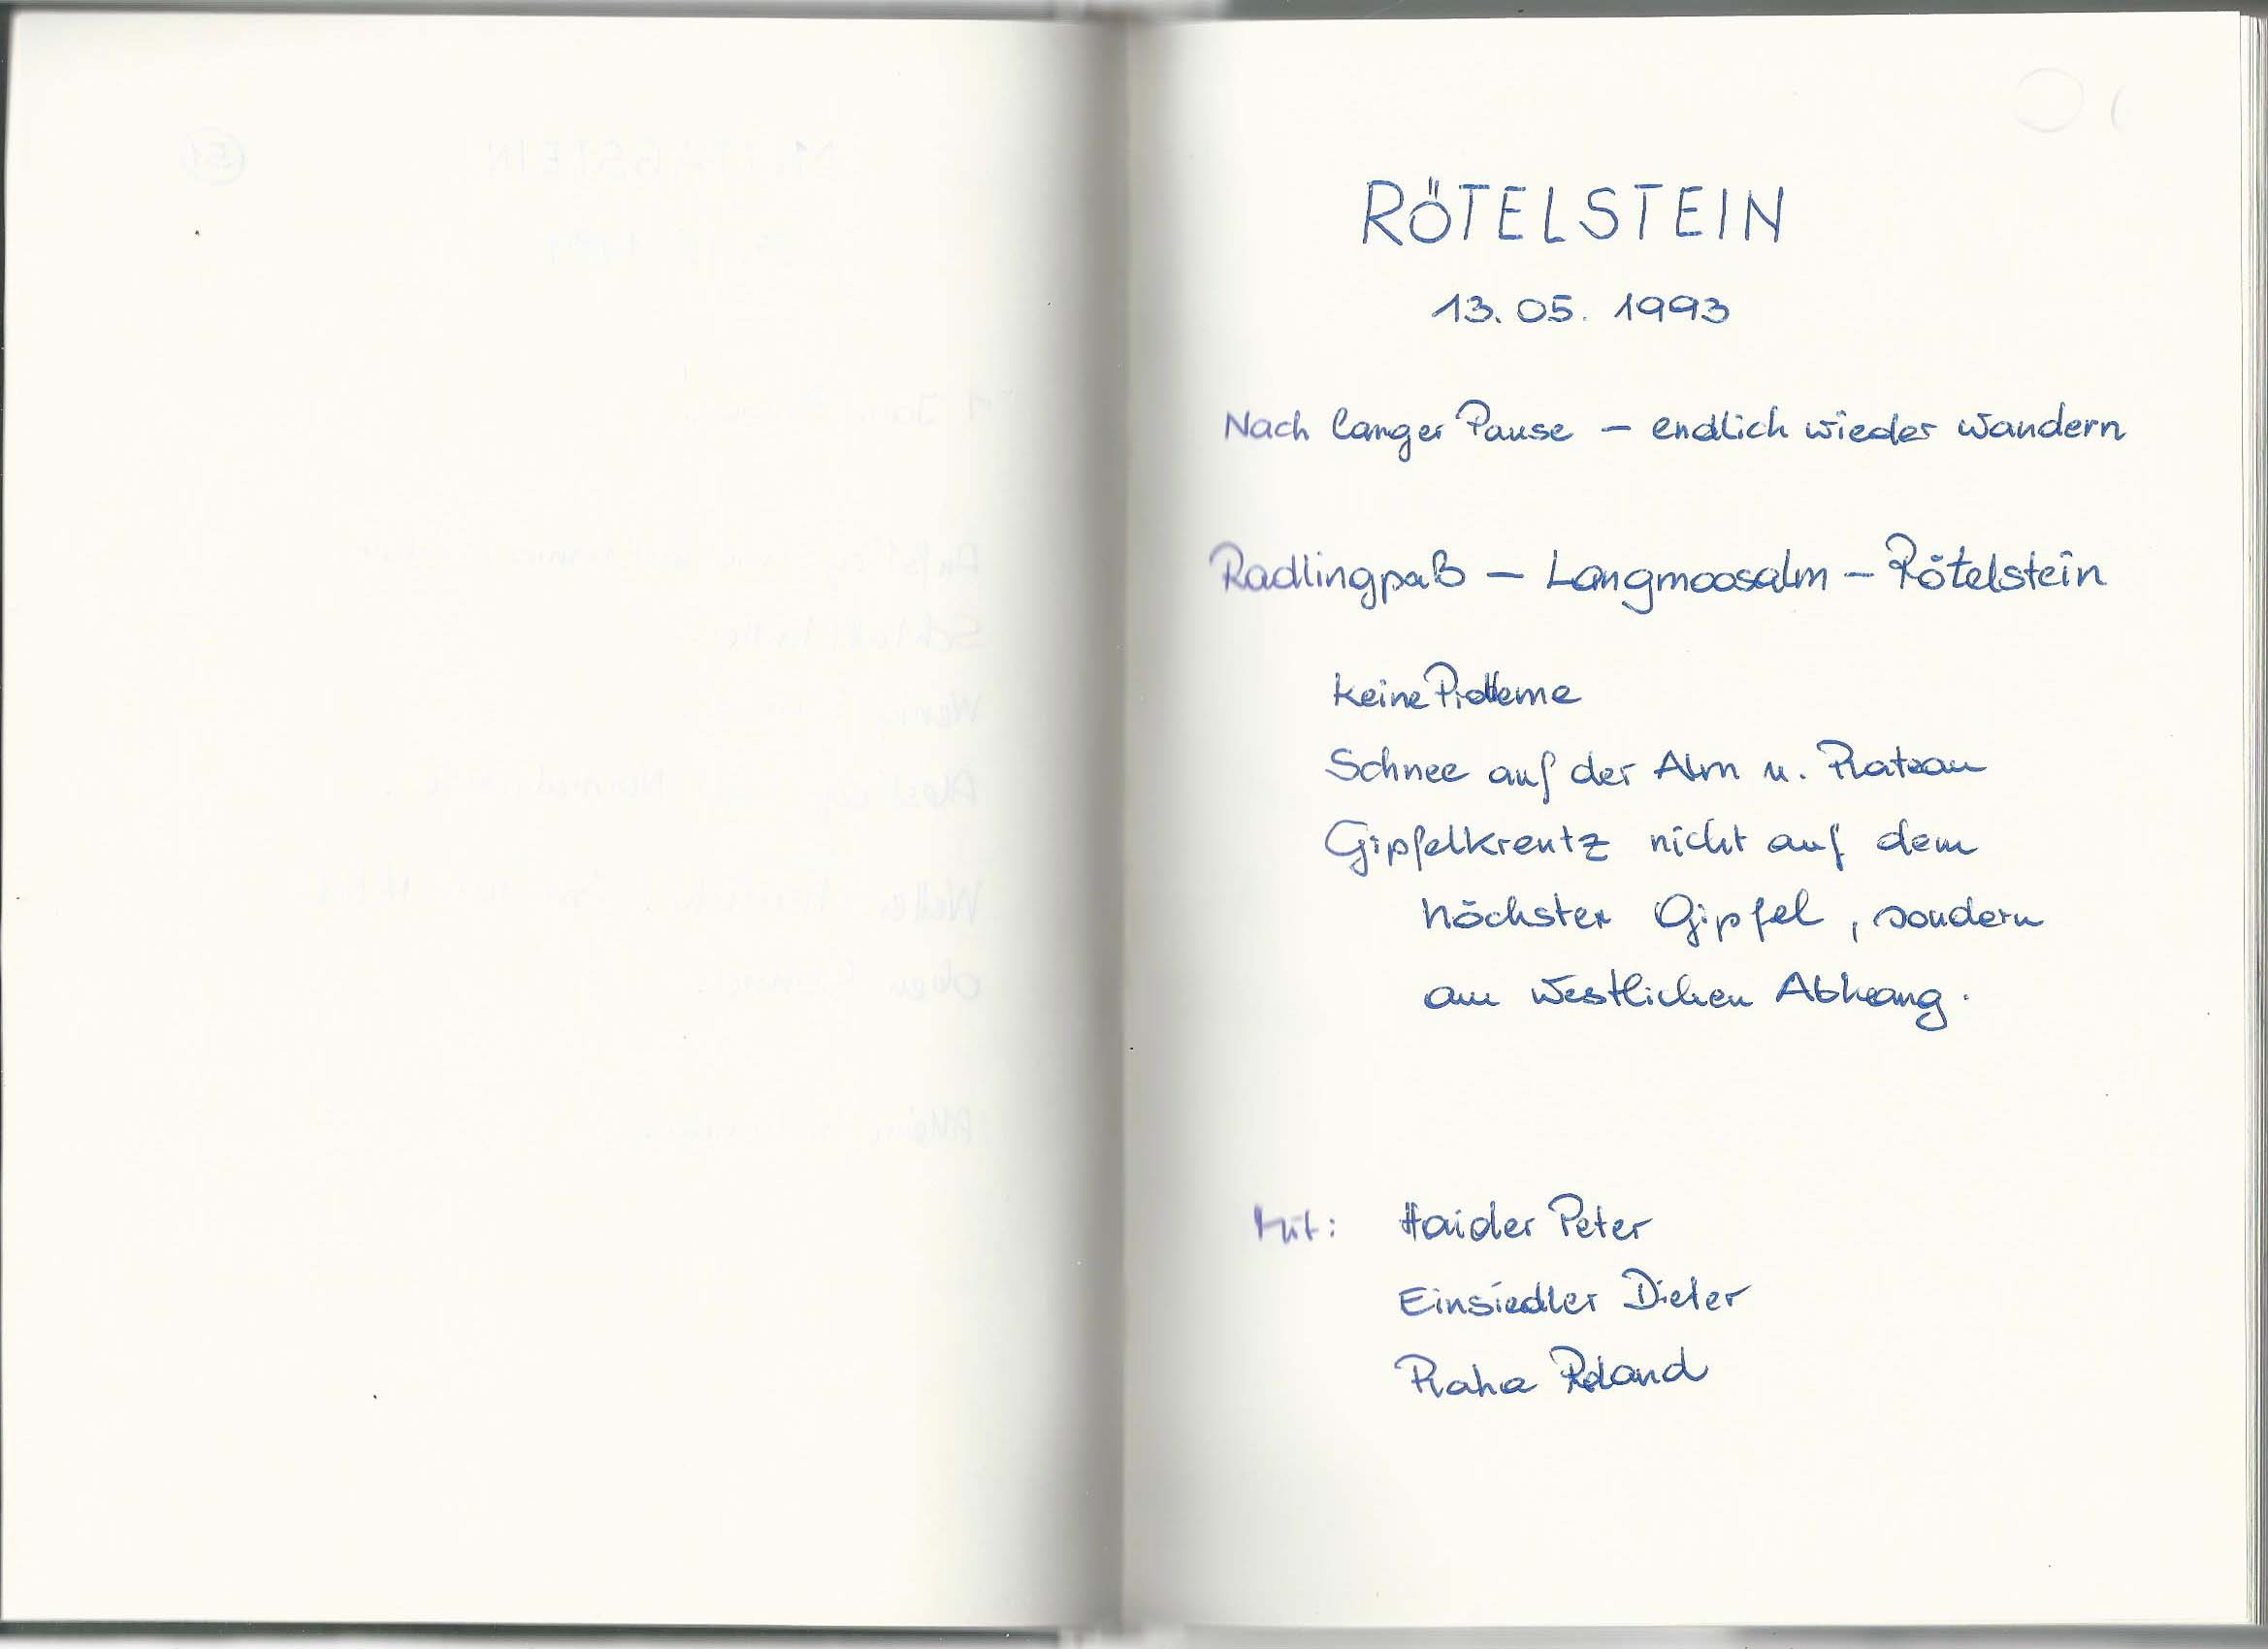 RÖTELSTEIN
13. 05. 1993
Nach langer Pause – endlich wieder wandern
Radlingpaß – Langmoosalm – Rötelstein
keine Probleme
Schnee auf der Alm u. Plateau
Gipfelkreutz nicht auf dem
höchsten Gipfel, sondern
am westlichen Abhang.
Mit: Haider Peter
Einsiedler Dieter
Roland